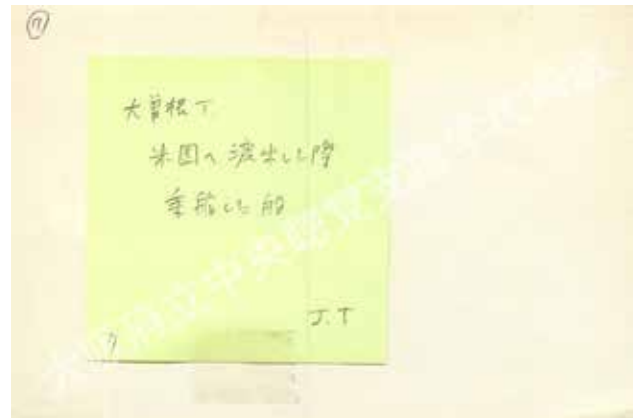 ⑰
大曽根T.
米国へ渡出した際
乗船した船
J.T
7